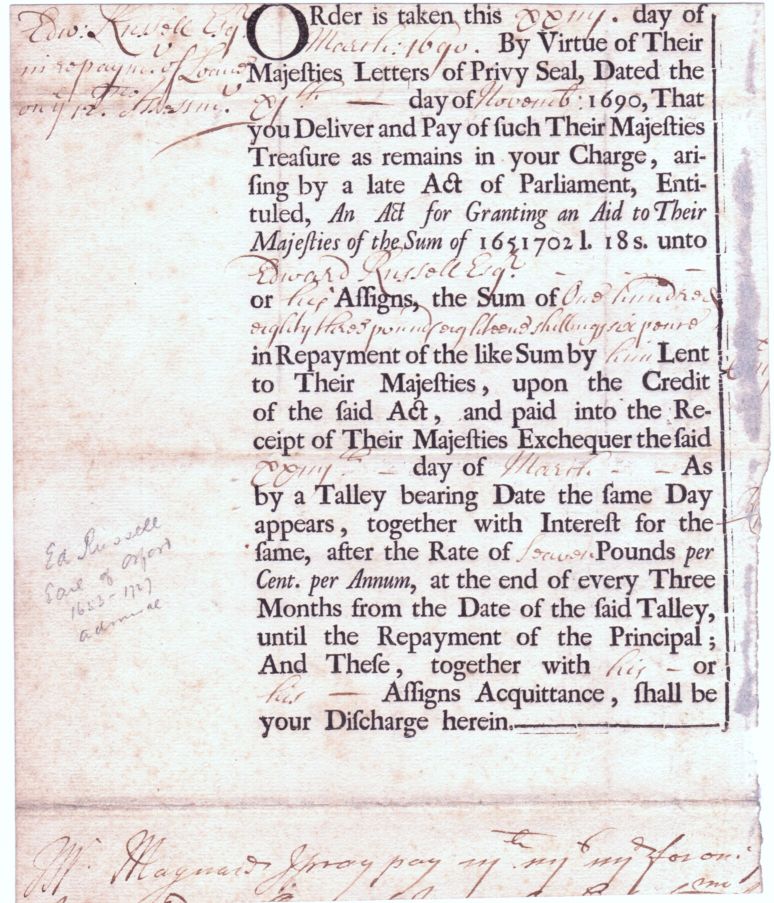 Edw: Russell Esqr
in repaym.t of Loane
on ye 12.d
ORder is taken this xxiiij. day of
March: 1690. By Virtue of Their
Majeſties Letters of Privy Seal, Dated the
day of Novemb: 1690, That
you Deliver and Pay of ſuch Their Majeſties
Treaſure as remains in your Charge, ari-
ſing by a late Act of Parliament, Enti-
tuled, An Act for Granting an Aid to Their
Majeſties of the Sum of 1651702 l. 18 s. unto
Edward Russell Esqr.
or his Aſſigns, the Sum of One hundred
eighty three pound eighteene shillings six pence
in Repayment of the like Sum by him Lent
to Their Majeſties, upon the Credit
of the ſaid Act, and paid into the Re-
ceipt of Their Majeſties Exchequer the ſaid
xxiiijth day of March As
by a Talley bearing Date the ſame Day
appears, together with Intereſt for the
ſame, after the Rate of Seaven Pounds per
Cent. per Annum, at the end of every Three
Months from the Date of the ſaid Talley,
until the Repayment of the Principal;
And Theſe, together with his or
his Aſſigns Acquittance, ſhall be
your Diſcharge herein.
Ed Russell
Earl of Orford
1653-1727
admiral
Mr. Maynard I pray pay